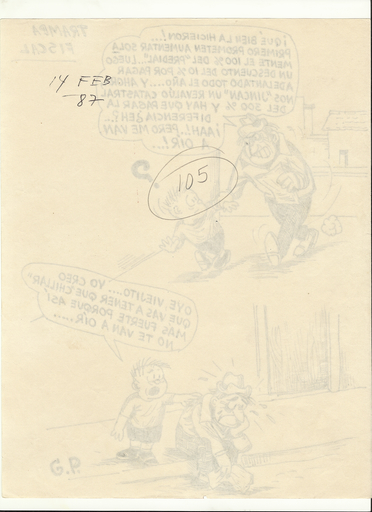 TRAMPA
FISCAL
14 FEB
-87
¡QUÉ BIEN LA HICIERON!
PRIMERO PROMETEN AUMENTAR SOLA
MENTE EL 100% DEL "PREDIAL"... LUEGO
UN DESCUENTO DEL 10% POR PAGAR
ADELANTADO TODO EL AÑO.... Y AHORA
NOS "JINCAN" UN REVALÚO CATASTRAL
DEL 500% Y HAY QUE PAGAR LA
DIFERENCIA ¿EH?
¡AAH!.. PERO ME VAN
A OIR...!
?
105
OYE VIEJITO..... YO CREO
QUE VAS A TENER QUE "CHILLAR"
MAS FUERTE PORQUE ASI
NO TE VAN A OIR.....
G.P.